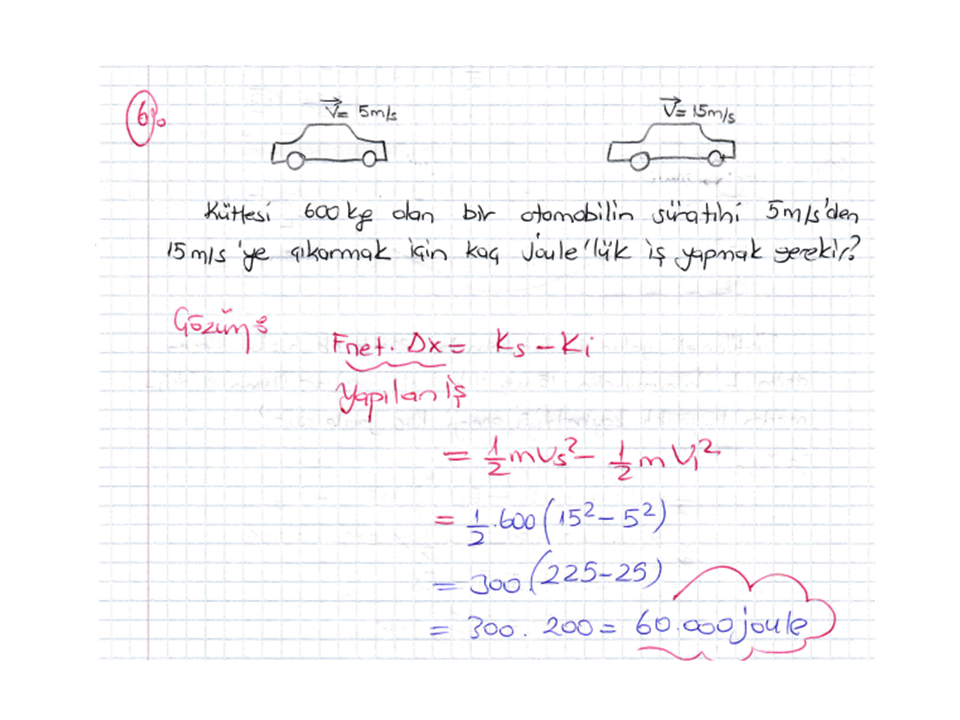 6%
V= 5m/s
V= 15m/s
Kütlesi 600 kg olan bir otomobilin süratini 5m/s'den
15 m/s 'ye çıkarmak için kaç Joule'lük iş yapmak gerekir?
Çözüm:
Fnet. Δx = Ks - Ki
Yapılan iş
= 1/2 mVs² - 1/2 mVi²
= 1/2 .600 (15² - 5²)
= 300 (225-25)
= 300. 200 = 60.000 joule